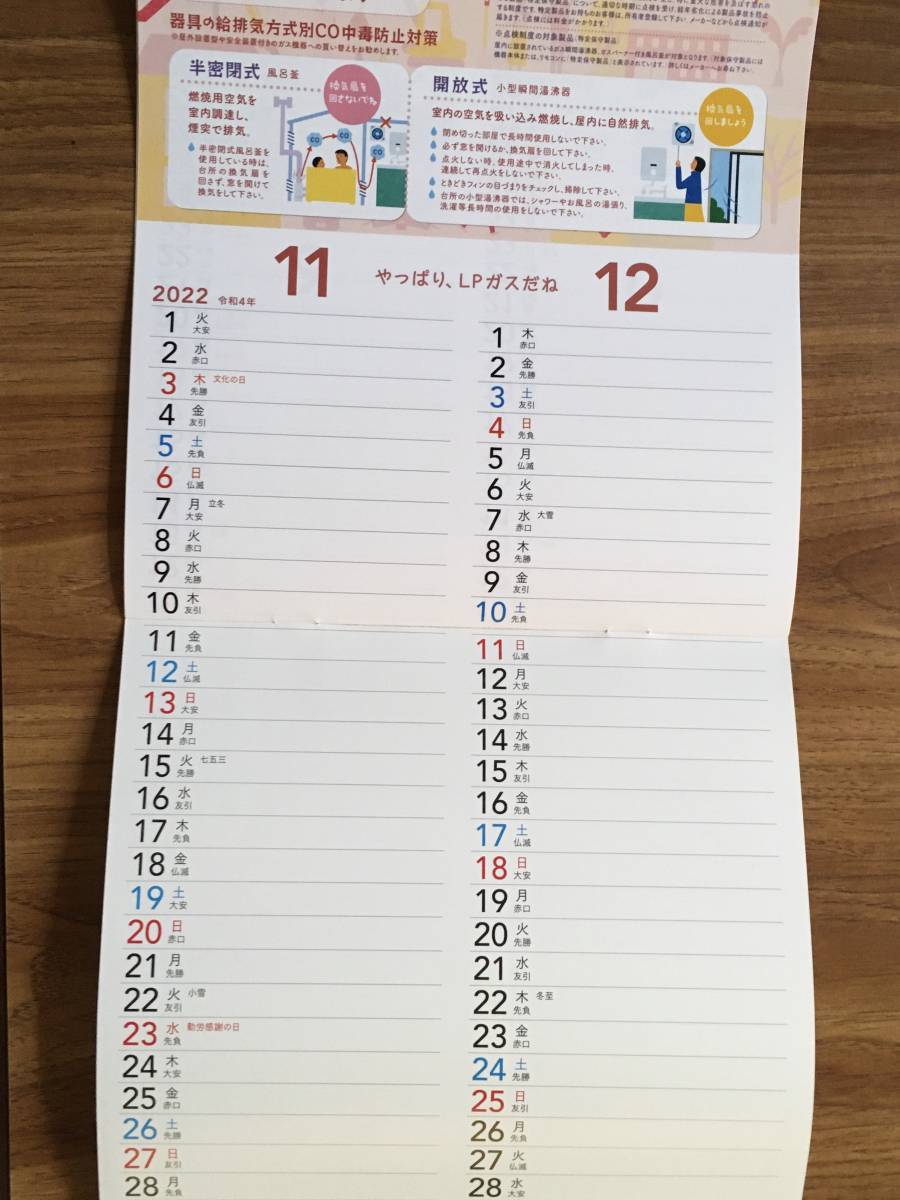 器具の給排気方式別CO中毒防止対策
※屋外設置型や安全装置付きのガス機器への買い替えをお勧めします。
届きます。(点検には料金がかかります。)
※点検制度の対象製品(特定保守製品)
屋内に設置されているガス瞬間湯沸器、ガスバーナー付き風呂釜が対象となります。(対象保守製品には
機器本体または、リモコンに「特定保守製品」と表示されています。詳しくはメーカーへお尋ね下さい。)
半密閉式 風呂釜
換気扇を
回さないでね
燃焼用空気を
室内調達し、
煙突で排気。
半密閉式風呂釜を
使用している時は、
台所の換気扇を
回さず、窓を開けて
換気をして下さい。
CO
CO
CO
開放式 小型瞬間湯沸器
換気扇を
回しましょう
室内の空気を吸い込み燃焼し、屋内に自然排気。
閉め切った部屋で長時間使用しないで下さい。
必ず窓を開けるか、換気扇を回して下さい。
点火しない時、使用途中で消火してしまった時、
連続して再点火をしないで下さい。
ときどきフィンの目づまりをチェックし、掃除して下さい。
台所の小型湯沸器では、シャワーやお風呂の湯張り、
洗濯等長時間の使用をしないで下さい。
11
やっぱり、LPガスだね
12
2022 令和4年
1 火 大安
2 水 赤口
3 木 先勝 文化の日
4 金 友引
5 土 先負
6 日 仏滅
7 月 大安 立冬
8 火 赤口
9 水 先勝
10 木 友引
11 金 先負
12 土 仏滅
13 日 大安
14 月 赤口
15 火 先勝 七五三
16 水 友引
17 木 先負
18 金 仏滅
19 土 大安
20 日 赤口
21 月 先勝
22 火 友引 小雪
23 水 先負 勤労感謝の日
24 木 大安
25 金 赤口
26 土 先勝
27 日 友引
28 月 先負
1 木 赤口
2 金 先勝
3 土 友引
4 日 先負
5 月 仏滅
6 火 大安
7 水 赤口 大雪
8 木 先勝
9 金 友引
10 土 先負
11 日 仏滅
12 月 大安
13 火 赤口
14 水 先勝
15 木 友引
16 金 先負
17 土 仏滅
18 日 大安
19 月 赤口
20 火 先勝
21 水 友引
22 木 先負 冬至
23 金 赤口
24 土 先勝
25 日 友引
26 月 先負
27 火 仏滅
28 水 大安